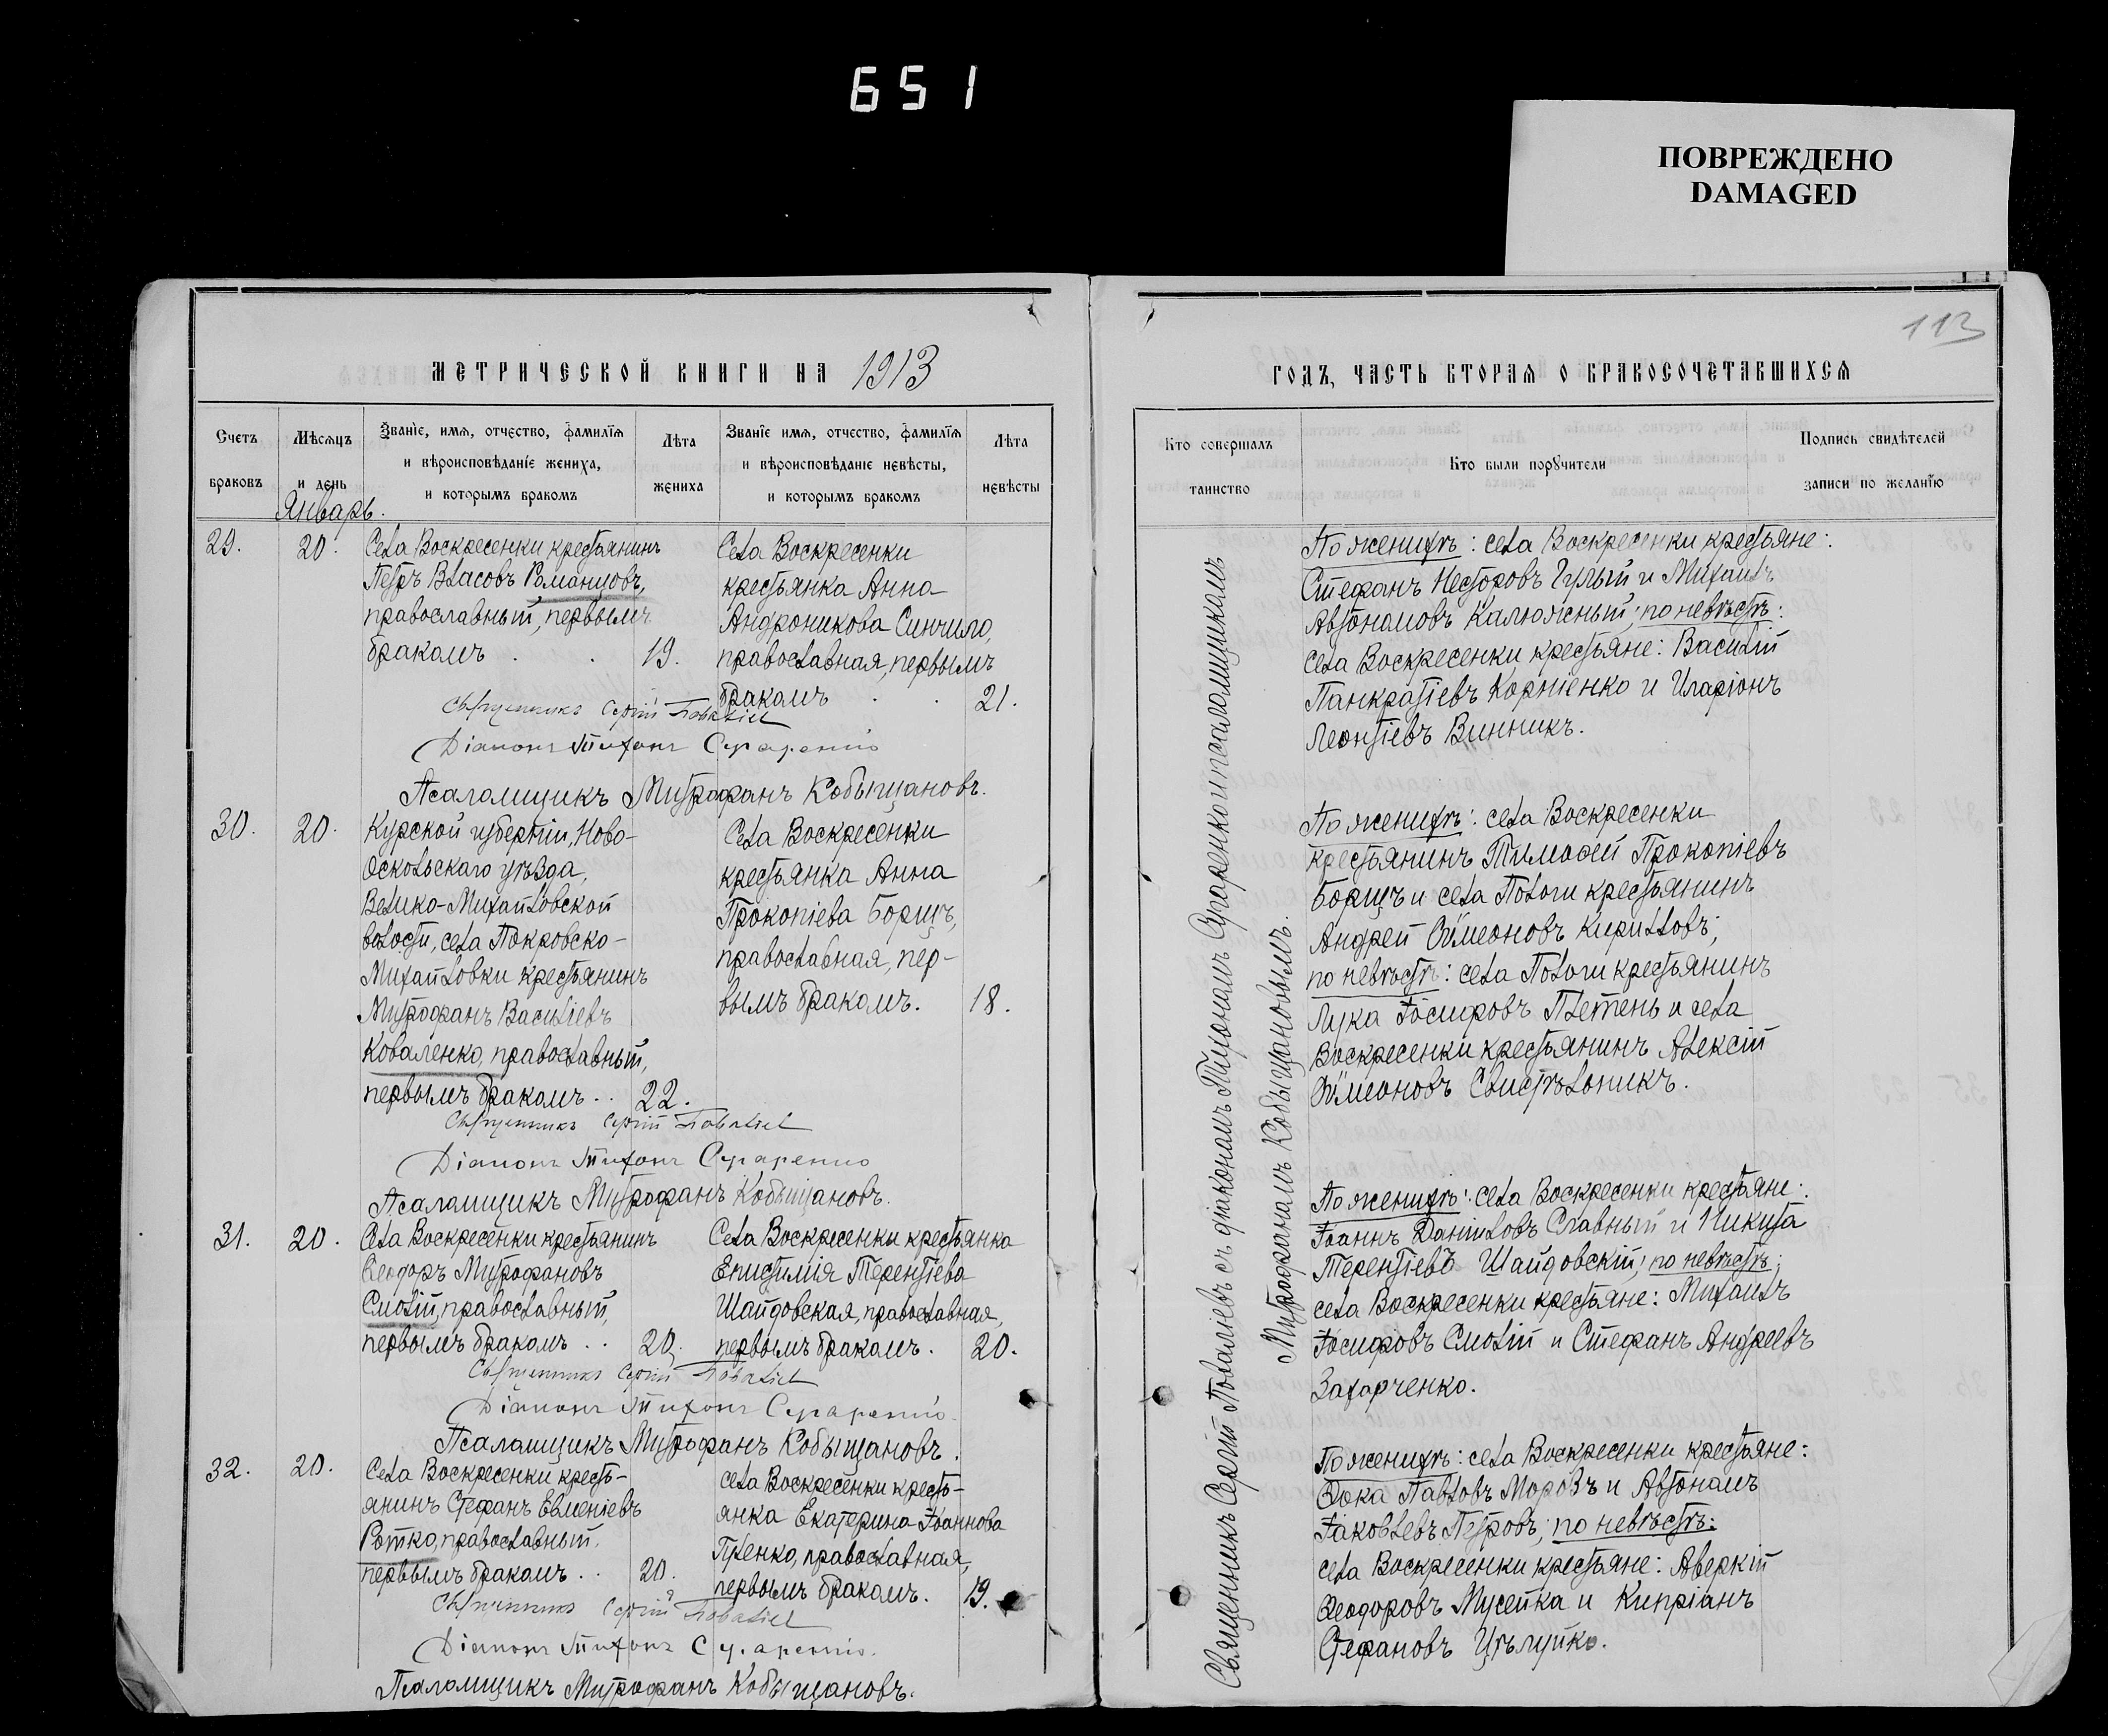 651
ПОВРЕЖДЕНО
DAMAGED
113
МЕТРИЧЕСКОЙ КНИГИ НА 1913
ГОДЪ, ЧАСТЬ ВТОРАЯ О БРАКОСОЧЕТАВШИХСЯ
Счетъ браковъ
Мѣсяцъ и день
Званіе, имя, отчество, фамилія
и вѣроисповѣданіе жениха,
и которымъ бракомъ
Лѣта жениха
Званіе имя, отчество, фамилія
и вѣроисповѣданіе невѣсты,
и которымъ бракомъ
Лѣта невѣсты
Кто совершалъ таинство
Кто были поручители
Подпись свидѣтелей
записи по желанію
Январь.
29.
20.
Села Воскресенки крестьянинъ
Петръ Власовъ Романцовъ,
православный, первымъ
бракомъ . . 19.
Села Воскресенки
крестьянка Анна
Андроникова Синчило,
православная, первымъ
бракомъ . . 21.
Священникъ Сергій Поваліев
Діаконъ Тихонъ Сухаренко
Псаломщикъ Митрофанъ Кобыщановъ.
30.
20.
Курской губерніи, Ново-
Оскольскаго уѣзда,
Велико-Михайловской
волости, села Покровско-
Михайловки крестьянинъ
Митрофанъ Васильевъ
Коваленко, православный,
первымъ бракомъ . . 22.
Села Воскресенки
крестьянка Анна
Прокопіева Борщъ,
православная, пер-
вымъ бракомъ. 18.
Священникъ Сергій Поваліев
Діаконъ Тихонъ Сухаренко
Псаломщикъ Митрофанъ Кобыщановъ.
31.
20.
Села Воскресенки крестьянинъ
Ѳеодоръ Митрофановъ
Смолій, православный,
первымъ бракомъ . . 20.
Села Воскресенки крестьянка
Епистимія Терентіева
Шайдовская, православная,
первымъ бракомъ. 20.
Священникъ Сергій Поваліев
Діаконъ Тихонъ Сухаренко
Псаломщикъ Митрофанъ Кобыщановъ.
32.
20.
Села Воскресенки кресть-
янинъ Стефанъ Евменіевъ
Ротко, православный.
первымъ бракомъ . . 20.
села Воскресенки кресть-
янка Екатерина Іоаннова
Гуленко, православная,
первымъ бракомъ. 19.
Священникъ Сергій Поваліев
Діаконъ Тихонъ Сухаренко.
Псаломщикъ Митрофанъ Кобыщановъ.
Священникъ Сергій Поваліевъ съ діакономъ Тихономъ Сухаренко и псаломщикомъ
Митрофаномъ Кобыщановымъ.
По женихѣ: села Воскресенки крестьяне:
Стефанъ Несторовъ Гулый и Михаилъ
Автономовъ Калюжный; по невѣстѣ:
села Воскресенки крестьяне: Василій
Панкратіевъ Корніенко и Иларіонъ
Леонтіевъ Винникъ.
По женихѣ: села Воскресенки
крестьянинъ Тимоѳей Прокопіевъ
Борщъ и села Пологи крестьянинъ
Андрей Сѵмеоновъ Кирилловъ;
по невѣстѣ: села Пологи крестьянинъ
Лука Іосифовъ Плетень и села
Воскресенки крестьянинъ Алексій
Сѵмеоновъ Свистѣльникъ.
По женихѣ: села Воскресенки крестьяне:
Іоаннъ Даніиловъ Славный и Никита
Терентіевъ Шайдовскій; по невѣстѣ:
села Воскресенки крестьяне: Михаилъ
Іосифовъ Смолій и Стефанъ Андреевъ
Захарченко.
По женихѣ: села Воскресенки крестьяне:
Ѳока Павловъ Морозъ и Автономъ
Іаковлевъ Петровъ; по невѣстѣ:
села Воскресенки крестьяне: Аверкій
Ѳеодоровъ Мусейка и Кипріанъ
Стефановъ Цѣлуйко.